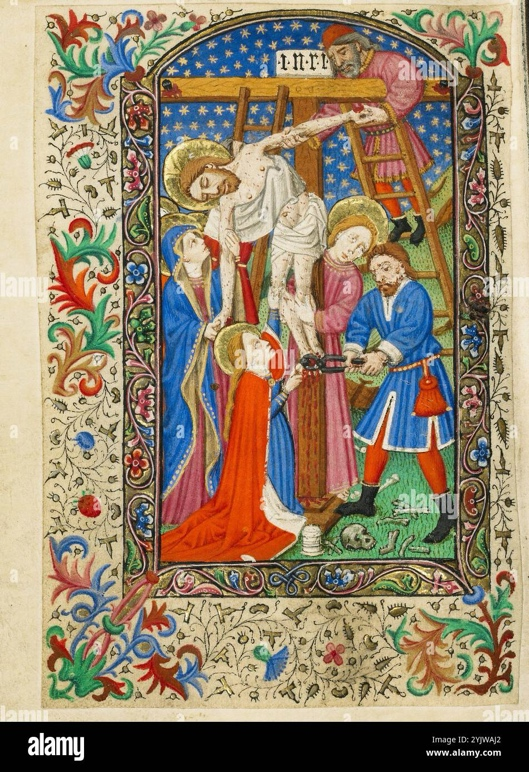 I.N.R.I
alamy
Image ID: 2YJWAJ2
www.alamy.com